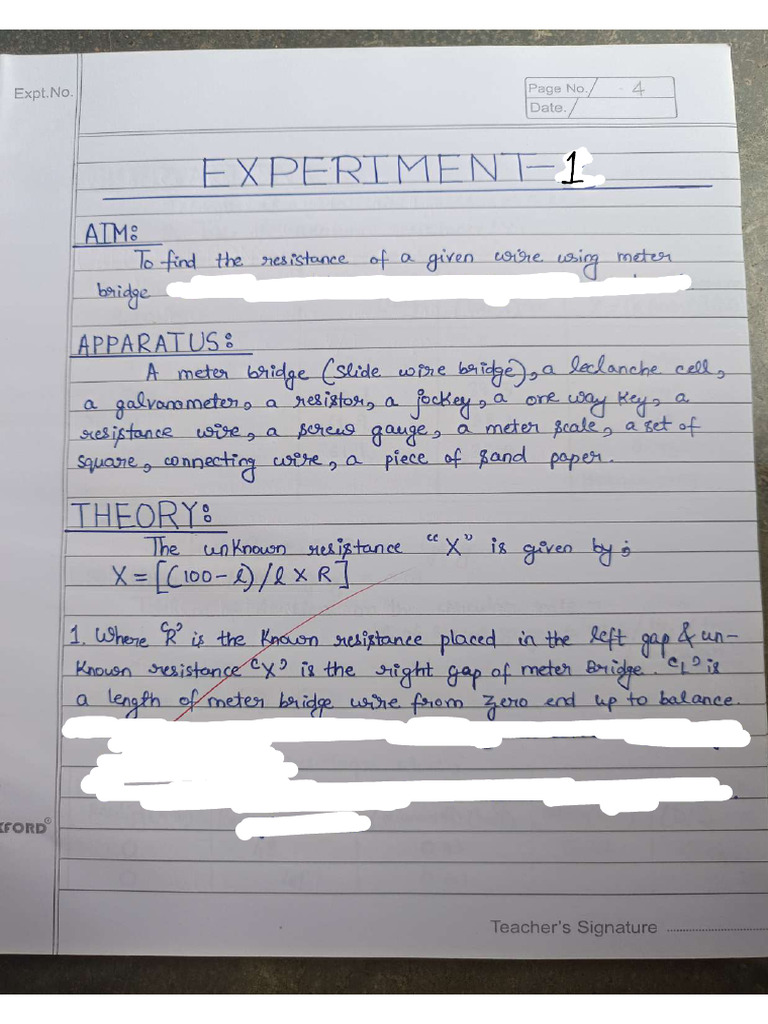 Expt.No.
Page No. 4
Date.
EXPERIMENT-1
AIM:
To find the resistance of a given wire using meter
bridge
APPARATUS:
A meter bridge (slide wire bridge), a leclanche cell,
a galvanometer, a resistor, a jockey, a one way key, a
resistance wire, a screw gauge, a meter scale, a set of
square, connecting wire, a piece of sand paper.
THEORY:
The unknown resistance "X" is given by:
X = [(100-l)/l X R]
1. Where 'R' is the known resistance placed in the left gap & un-
known resistance 'X' is the right gap of meter bridge. 'L' is
a length of meter bridge wire from zero end up to balance.
XFORD®
Teacher's Signature